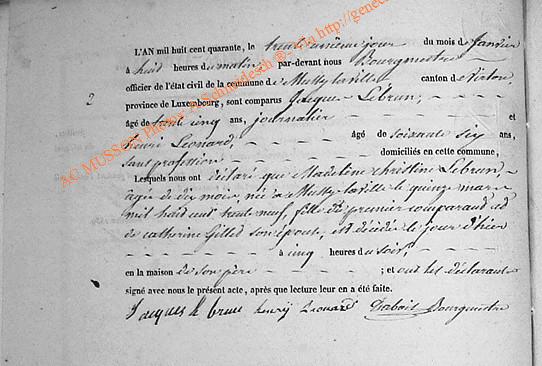 L'AN mil huit cent quarante, le trente unième jour du mois de Janvier
à huit heures du matin par-devant nous Bourgmestre
officier de l'état civil de la commune de Mussy-la-ville canton de Virton,
2
province de Luxembourg, sont comparus Jacques Lebrun,
âgé de trente cinq ans, journalier et
henri Léonard, âgé de soixante six ans,
sans profession domiciliés en cette commune,
Lesquels nous ont déclaré que Madeleine christine Lebrun,
agée de dix mois, née à Mussy-la-ville le quinze mars
mil huit cent trente neuf, fille du premier comparant et
de catherine Gilles son épouse, est décédée le jour d'hier
à cinq heures du soir,
en la maison de son père ; et ont les déclarants
signé avec nous le présent acte, après que lecture leur en a été faite.
Jacques le brun henry Léonard Bourgmestre
AC MUSSON Photos ©Schneidesch ®
via http://genec